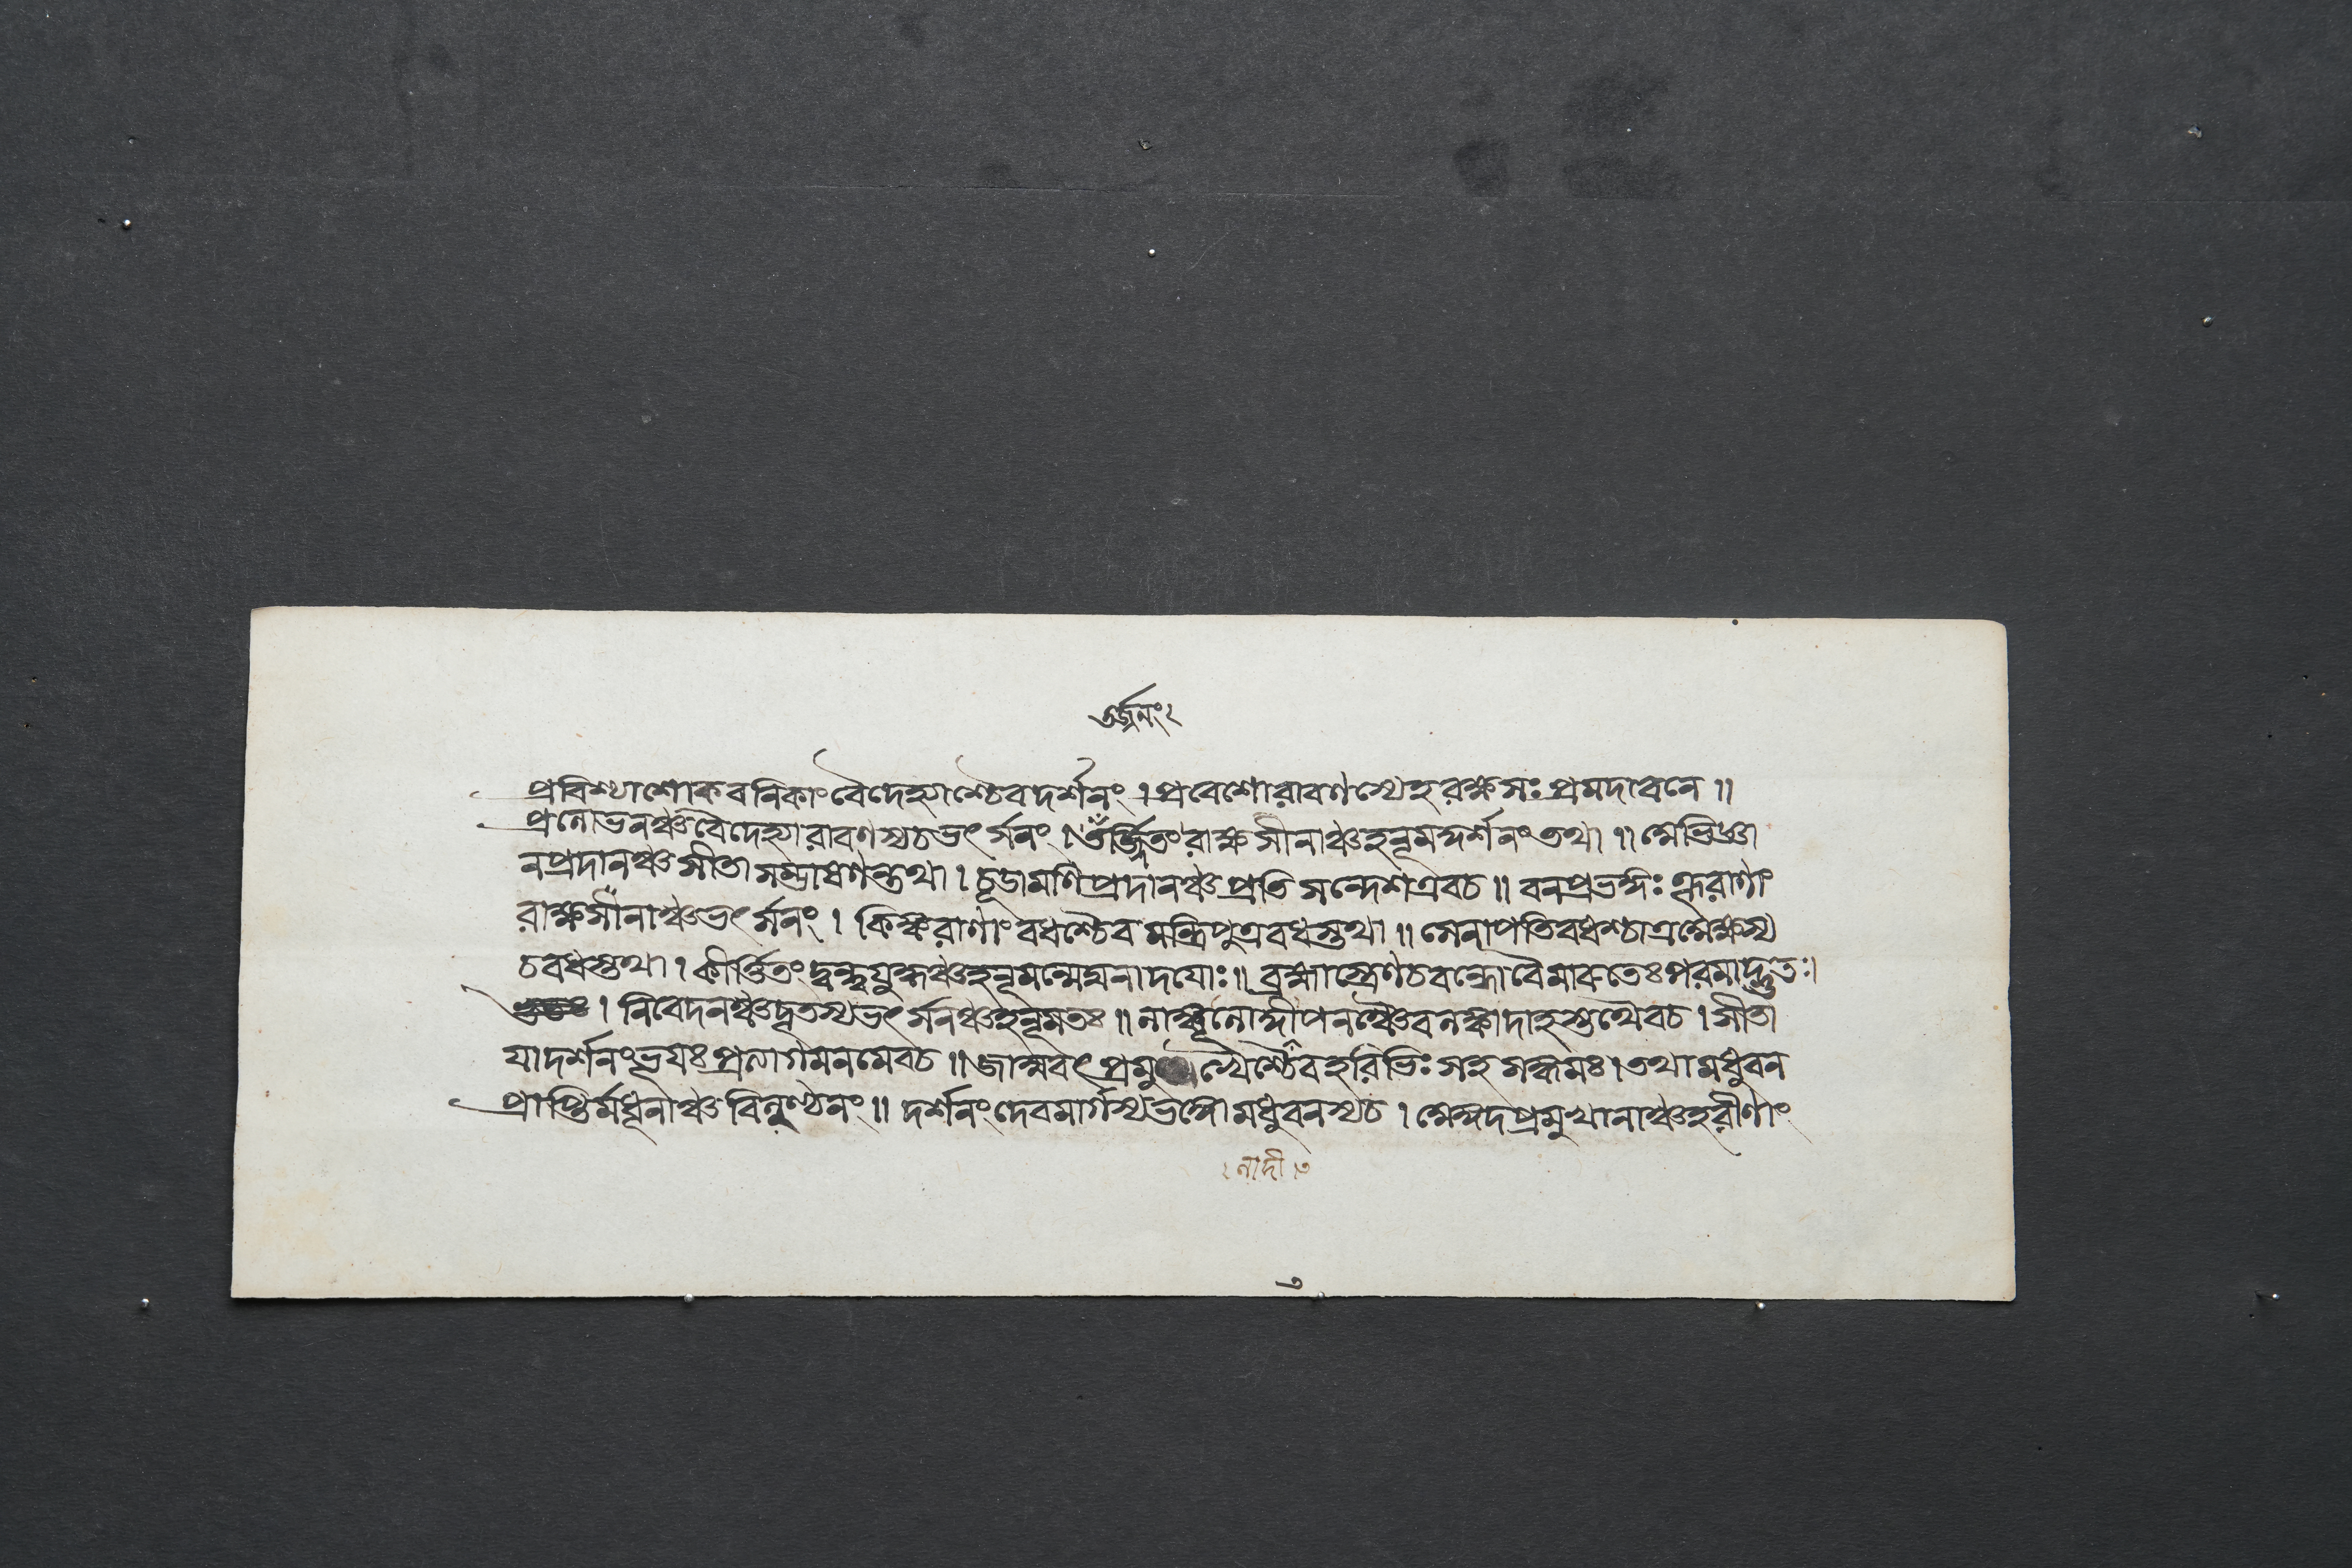 তর্জ্জনং২
প্রবিশ্যাশোকবনিকাং বৈদেহ্যাশ্চৈবদর্শনং । প্রবেশোরাবণস্যেহরক্ষসঃ প্রমদাবনে ॥
প্রলোভনঞ্চবৈদেহ্যারাবণস্যচভর্ৎসনং । তর্জ্জিতং রাক্ষসীনাঞ্চহনূমদ্দর্শনংতথা ॥ সোভিজ্ঞা
নপ্রদানঞ্চসীতাসম্ভাষণন্তথা । চূডামণিপ্রদানঞ্চপ্রতিসন্দেশএবচ ॥ বনপ্রভঙ্গঃ
রাক্ষসীনাঞ্চভর্ৎসনং । কিঙ্করাণাং বধশ্চৈব মন্ত্রিপুত্রবধস্তথা ॥ সেনাপতিবধশ্চাত্র
চবধস্তথা । কীর্ত্তিতং দ্বন্দ্বযুদ্ধঞ্চহনূমন্মেঘনাদযোঃ ॥ ব্রহ্মাস্ত্রেণচবন্ধোবৈমারুতেঃপরমাদ্ভুতঃ।
। নিবেদনঞ্চদূতস্যভর্ৎসনঞ্চহনূমতঃ ॥ লাঙ্গূলোদ্দীপনঞ্চৈবলঙ্কাদাহস্তথৈবচ । সীতা
যাদর্শনংভূযঃপ্রত্যাগমনমেবচ ॥ জাম্ববৎপ্রমুখৈশ্চৈবহরিভিঃসহসঙ্গমঃ । তথামধুবন
প্রাপ্তির্মধূনাঞ্চবিলুণ্ঠনং ॥ দর্শনংদেবমার্গস্যভঙ্গোমধুবনস্যচ । প্রমুখানাঞ্চহরীণাং
৩